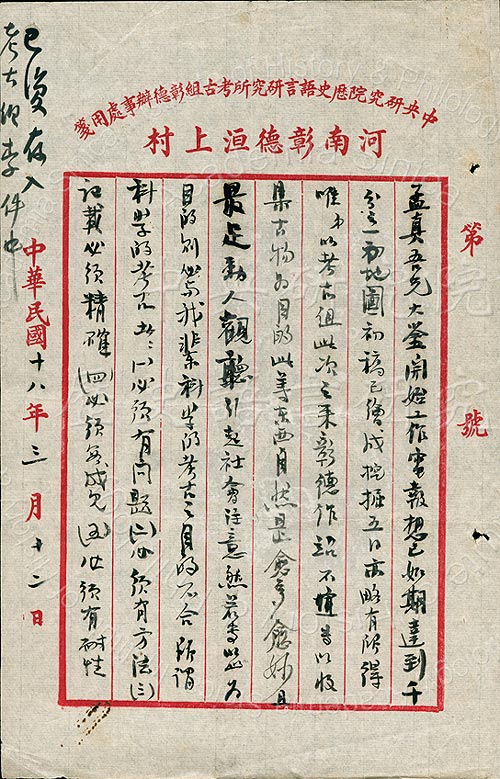 中央研究院歷史語言研究所考古組彰德辦事處用箋
河南彰德洹上村
第 號
孟真吾兄大鑒開始工作電報想已如期達到千
分之一初地圖初稿已繪成挖掘五日亦略有所得
唯弟以考古組此次之來彰德作始不慎專以收
集古物為目的此等東西自然是愈多愈妙且
最足動人觀聽引起社會注意然若專以此為
目的則必需我輩科學的考古之目的不合所謂
科學的考古者(一)必須有問題(二)必須有方法(三)
記載必須精確(四)必須無成見(五)必須有耐性
中華民國十八年三月十二日
已復存入
考古組李件中